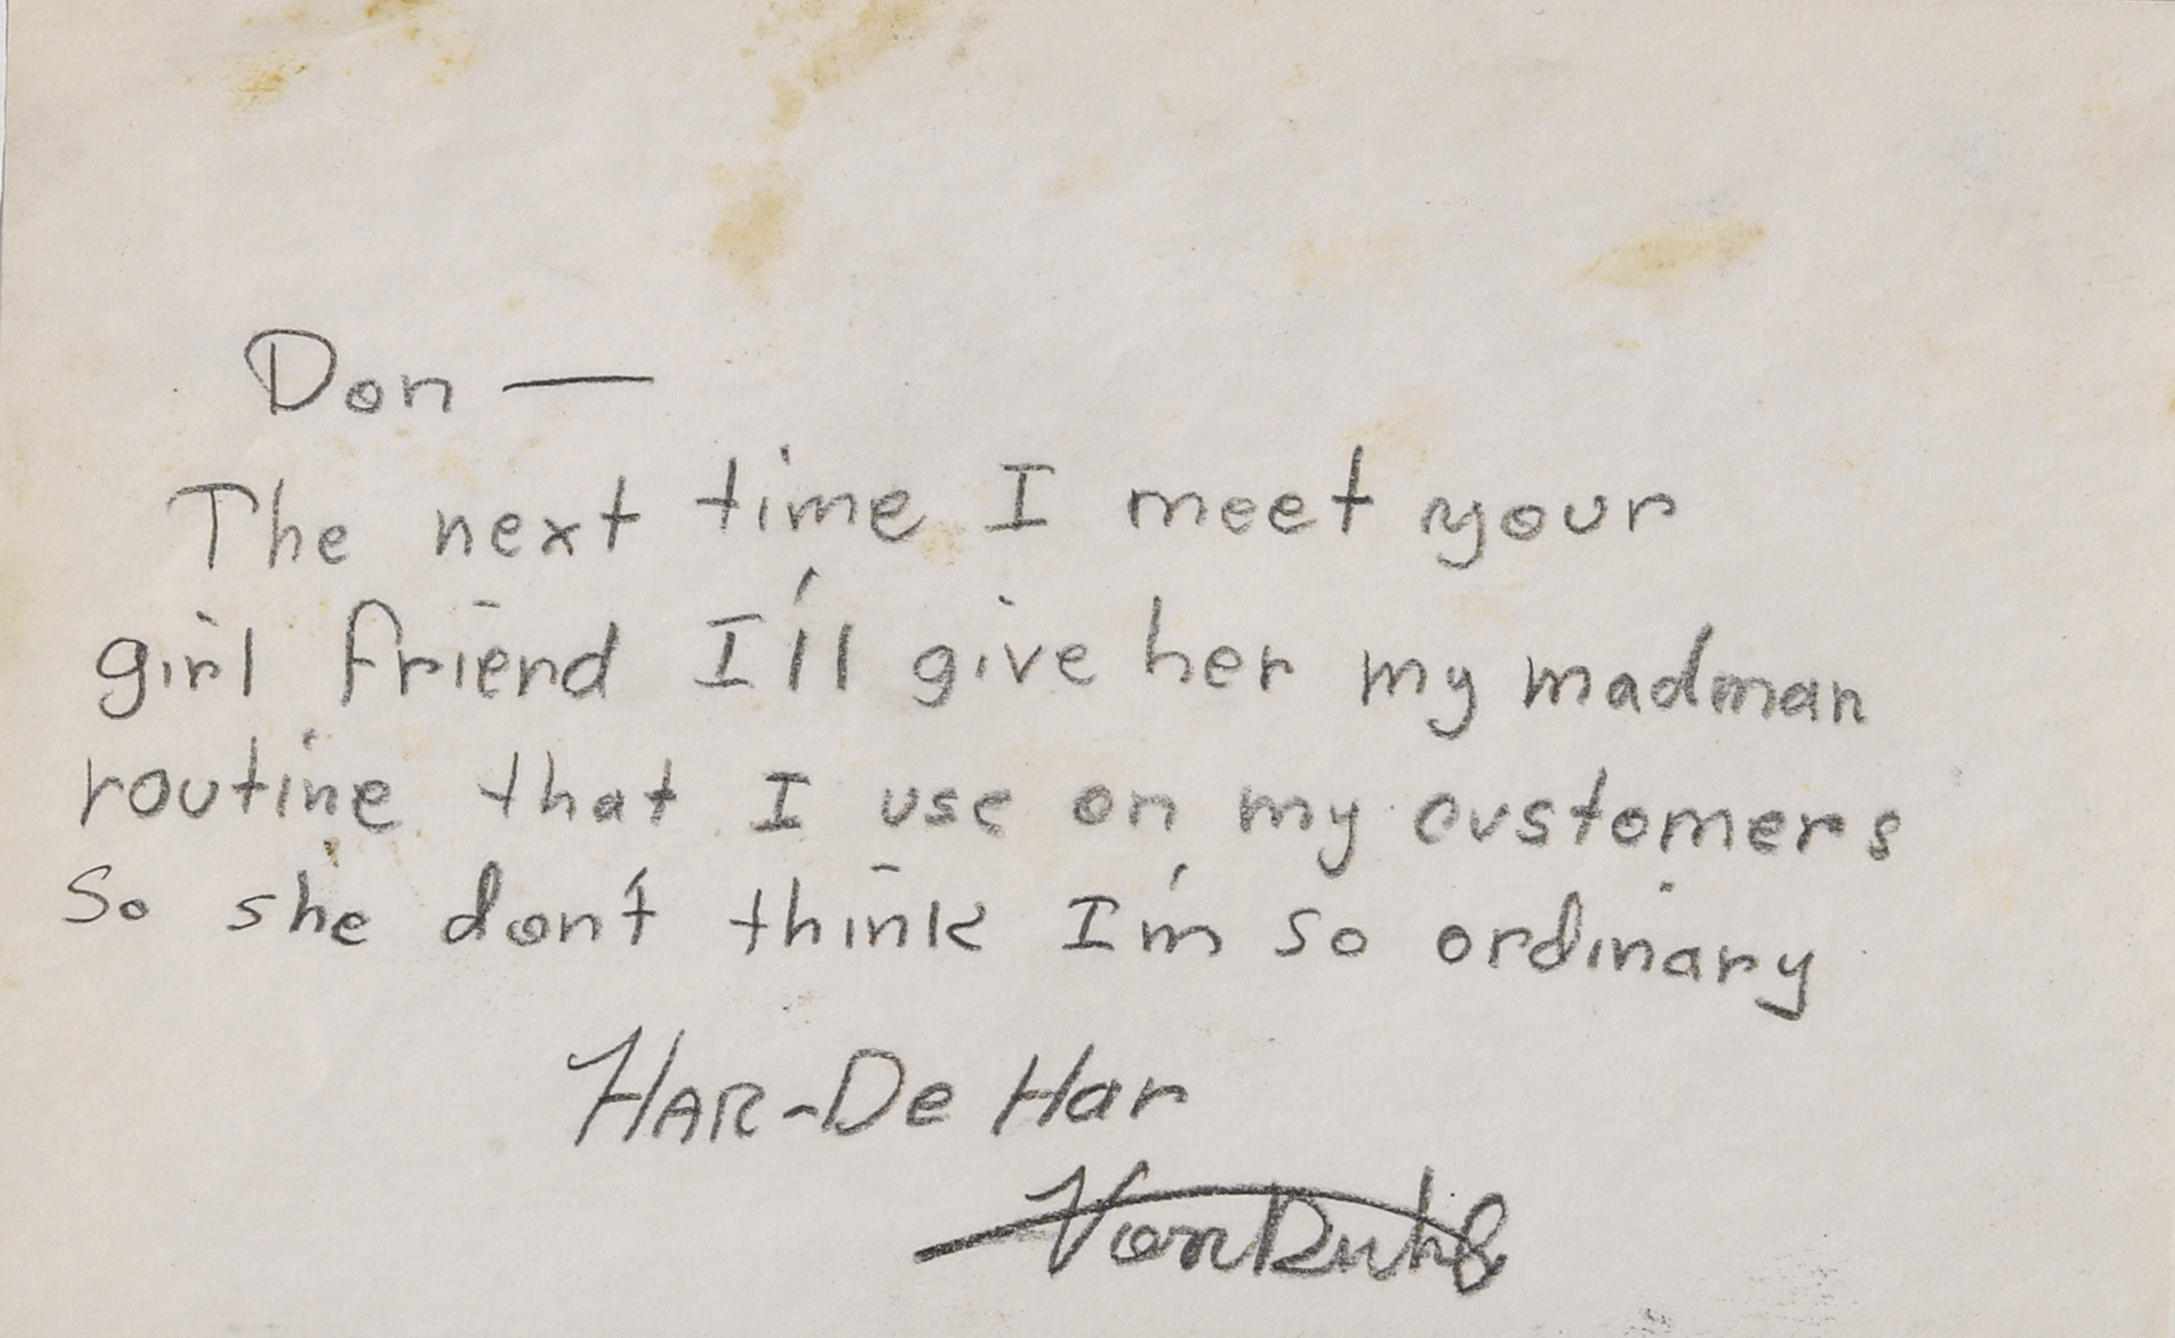 Don —
The next time I meet your
girl friend I'll give her my madman
routine that I use on my customers
So she don't think I'm so ordinary
HAR-De Har